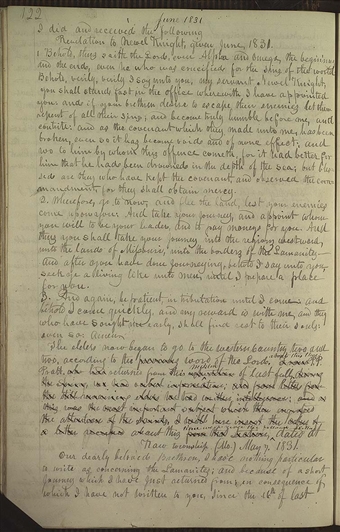 122
June 1831
I did and received the following
Revelation to Newel Knight, given June, 1831.
1 Behold, thus saith the Lord, even Alpha and Omega, the beginning
and the end, even he who was crucified for the sins of the world.
Behold, verily, verily I say unto you, my servant Newel Knight,
you shall stand fast in the office wherewith I have appointed
you: and if your brethren desire to escape, their enemies let them
repent of all their sins; and become truly humble before me, and
contrite: and as the covenant which they made unto me, has been
broken, even so it has become void and of none effect; and
wo to him by whom this offence cometh, for it had been better for
him that he had been drowned in the depth of the sea; but bles-
sed are they who have kept the covenant, and observed the com-
mandment, for they shall obtain mercy.
2. Wherefore, go to now, and flee the land, lest your enemies
come upon you: And take your journey, and appoint whom
you will to be your leader, and to pay moneys for you. And
thus you shall take your journey into the regions westward,
unto the land of Missouri, unto the borders of the Lamanites.
And after you have done journeying, behold I say unto you,
seek ye a living like unto men, until I prepare a place
for you.
3. And again, be patient in tribulation until I come: and
behold I come quickly, and my reward is with me, and they
who have sought me early, shall find rest to their souls:
even so: Amen.
The elders now began to go to the western country, two and
two, according to the word of the Lord.
Pratt, returned from the of last fall
dated at
May 7, 1831.
Our dearly beloved Brethren, I have nothing particular
to write as concerning the Lamanites; and because of a short
journey which I have just returned from, in consequence of
which I have not written to you, since the 16th of last